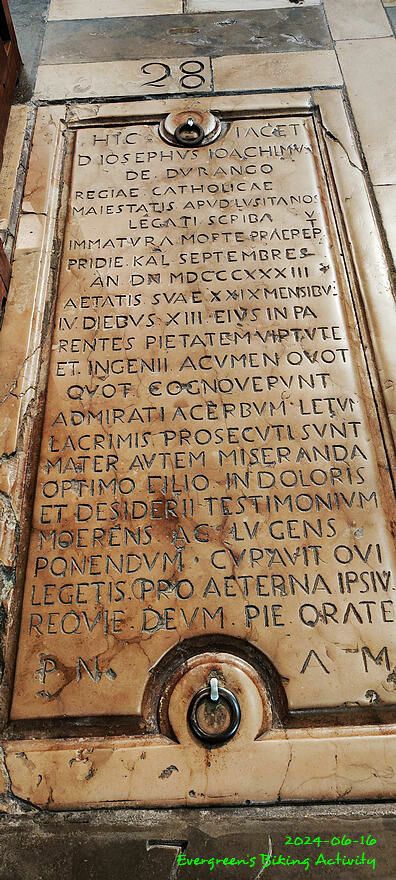 28
HIC IACET
D. IOSEPHVS IOACHIMVS
DE. DVRANGO
REGIAE CATHOLICAE
MAIESTATIS APVD LVSITANOS
LEGATI SCRIBA
IMMATVRA MORTE PRAEREPTVS
PRIDIE. KAL SEPTEMBRES
AN DNI MDCCCXXXIII
AETATIS SVAE XXIX MENSIBVS
IV. DIEBVS XIII EIVS IN PA
RENTES PIETATEM VIRTVTE
ET. INGENII ACVMEN QVOT
QVOT COGNOVERVNT
ADMIRATI ACERBVM LETVM
LACRIMIS PROSECVTI SVNT
MATER AVTEM MISERANDA
OPTIMO FILIO IN DOLORIS
ET DESIDERII TESTIMONIVM
MOERENS AC LVGENS
PONENDVM CVRAVIT QVI
LEGETIS. PRO AETERNA IPSIVS
REQVIE. DEVM. PIE ORATE
P. N. A M
2024-06-16
Evergreens Biking Activity